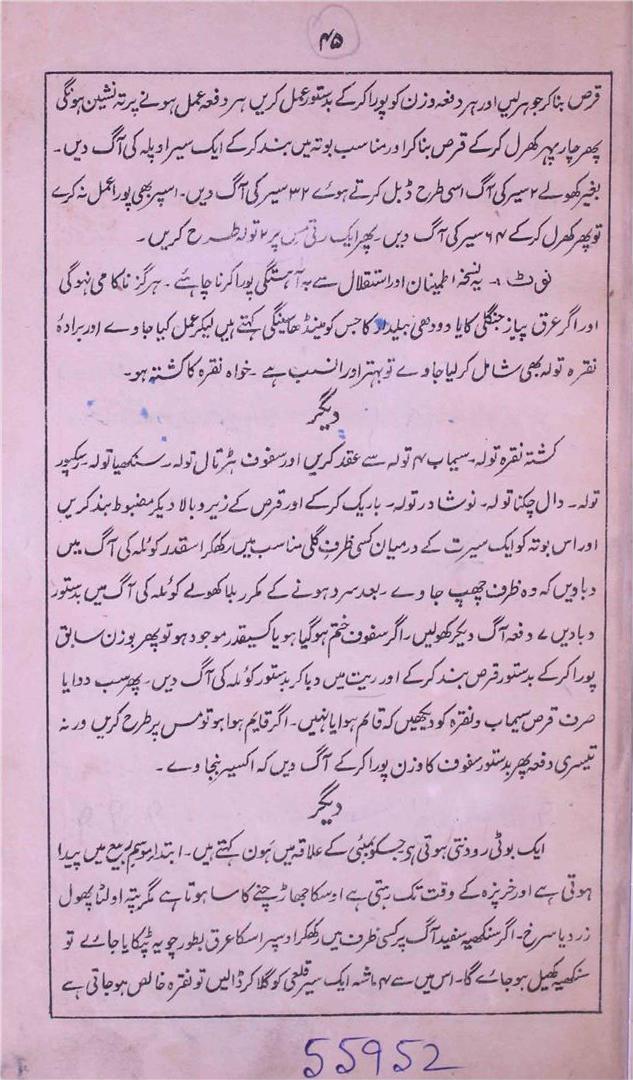 ۴۵
قرص بنا کر جوہر لیں اور ہر دفعہ وزن کو پورا کر کے بدستور عمل کریں ہر دفعہ عمل ہونے پر تہ نشین ہونگی
پھر چار پہر کھرل کر کے قرص بنا کر اور مناسب بوتہ میں بند کر کے ایک سیر اوپلہ کی آگ دیں۔
بغیر کھولے ۲ سیر کی آگ اسی طرح ڈبل کرتے ہوئے ۳۲ سیر کی آگ دیں۔ اسپر بھی پورا عمل نہ کرے
تو پھر کھرل کر کے ۶۴ سیر کی آگ دیں۔ پھر ایک رتی مس پر ۲ تولہ طرح کریں۔
نوٹ :۔ یہ نسخہ اطمینان اور استقلال سے بہ آہستگی پورا کرنا چاہئے۔ ہرگز ناکامی نہوگی
اور اگر عرق پیاز جنگلی کا یا دودھی بیلدار کا جس کو مینڈھا سینگی کہتے ہیں لیکر عمل کیا جاوے اور برادۂ
نقرہ تولہ بھی شامل کر لیا جاوے تو بہتر اور انسب ہے۔ خواہ نقرہ کا کشتہ ہو۔
دیگر
کشتہ نقرہ تولہ۔ سیماب ۴ تولہ سے عقد کریں اور سفوف ہڑتال تولہ۔ سنکھیا تولہ۔ رسکپور
تولہ۔ دال چکنا تولہ۔ نوشادر تولہ۔ باریک کر کے اور قرص کے زیر و بالا دیکر مضبوط بند کریں
اور اس بوتہ کو ایک سیر ریت کے درمیان کسی ظرف گلی مناسب میں رکھکر اسقدر کوئلہ کی آگ میں
دبا دیں کہ وہ ظرف چھپ جاوے۔ بعد سرد ہونے کے مکرر بلا کھولے کوئلہ کی آگ میں بدستور
دبا دیں ۷ دفعہ آگ دیکر کھولیں۔ اگر سفوف ختم ہو گیا ہو یا کسیقدر موجود ہو تو پھر بوزن سابق
پورا کر کے بدستور قرص بند کر کے اور ریت میں دبا کر بدستور کوئلہ کی آگ دیں۔ پھر سب دوا یا
صرف قرص سیماب و نقرہ کو دیکھیں کہ قائم ہوا یا نہیں۔ اگر قایم ہوا ہو تو مس پر طرح کریں ورنہ
تیسری دفعہ پھر بدستور سفوف کا وزن پورا کر کے آگ دیں کہ اکسیر بنجاوے۔
دیگر
ایک بوٹی رودنتی ہوتی ہی جسکو بمبئی کے علاقہ میں ہون کہتے ہیں۔ ابتدا موسم ربیع میں پیدا
ہوتی ہے اور خریزہ کے وقت تک رہتی ہے اوسکا جھاڑ چنے کا سا ہوتا ہے مگر پتہ اولٹا پھول
زرد یا سرخ۔ اگر سنکھیہ سفید آگ پر کسی ظرف میں رکھکر اوسپر اسکا عرق بطور چویہ ٹپکایا جائے تو
سنکھیہ کھیل ہو جائے گا۔ اس میں سے ۴ ماشہ ایک سیر قلعی کو گلا کر ڈالیں تو نقرہ خالص ہو جاتی ہے
55952